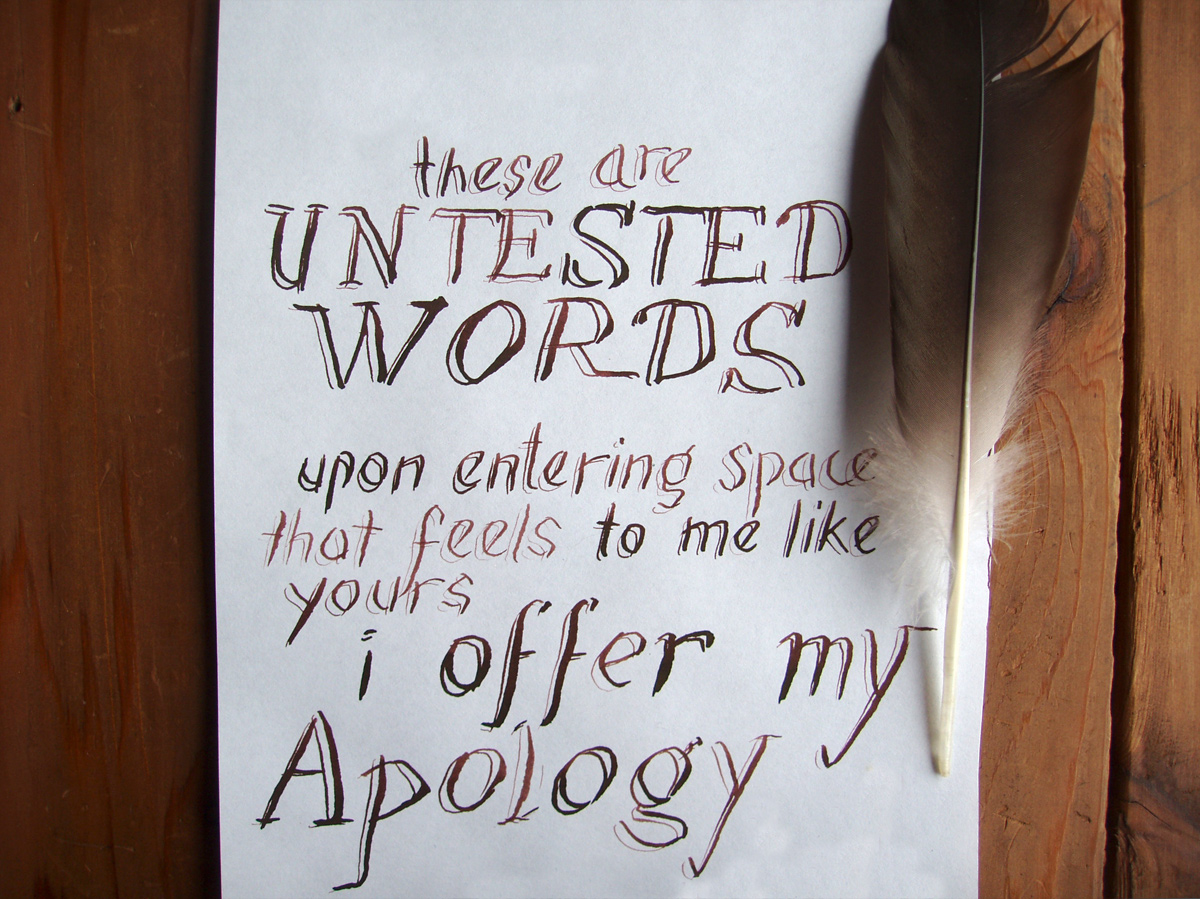 these are
UNTESTED
WORDS
upon entering space
that feels to me like
yours
i offer my
Apology